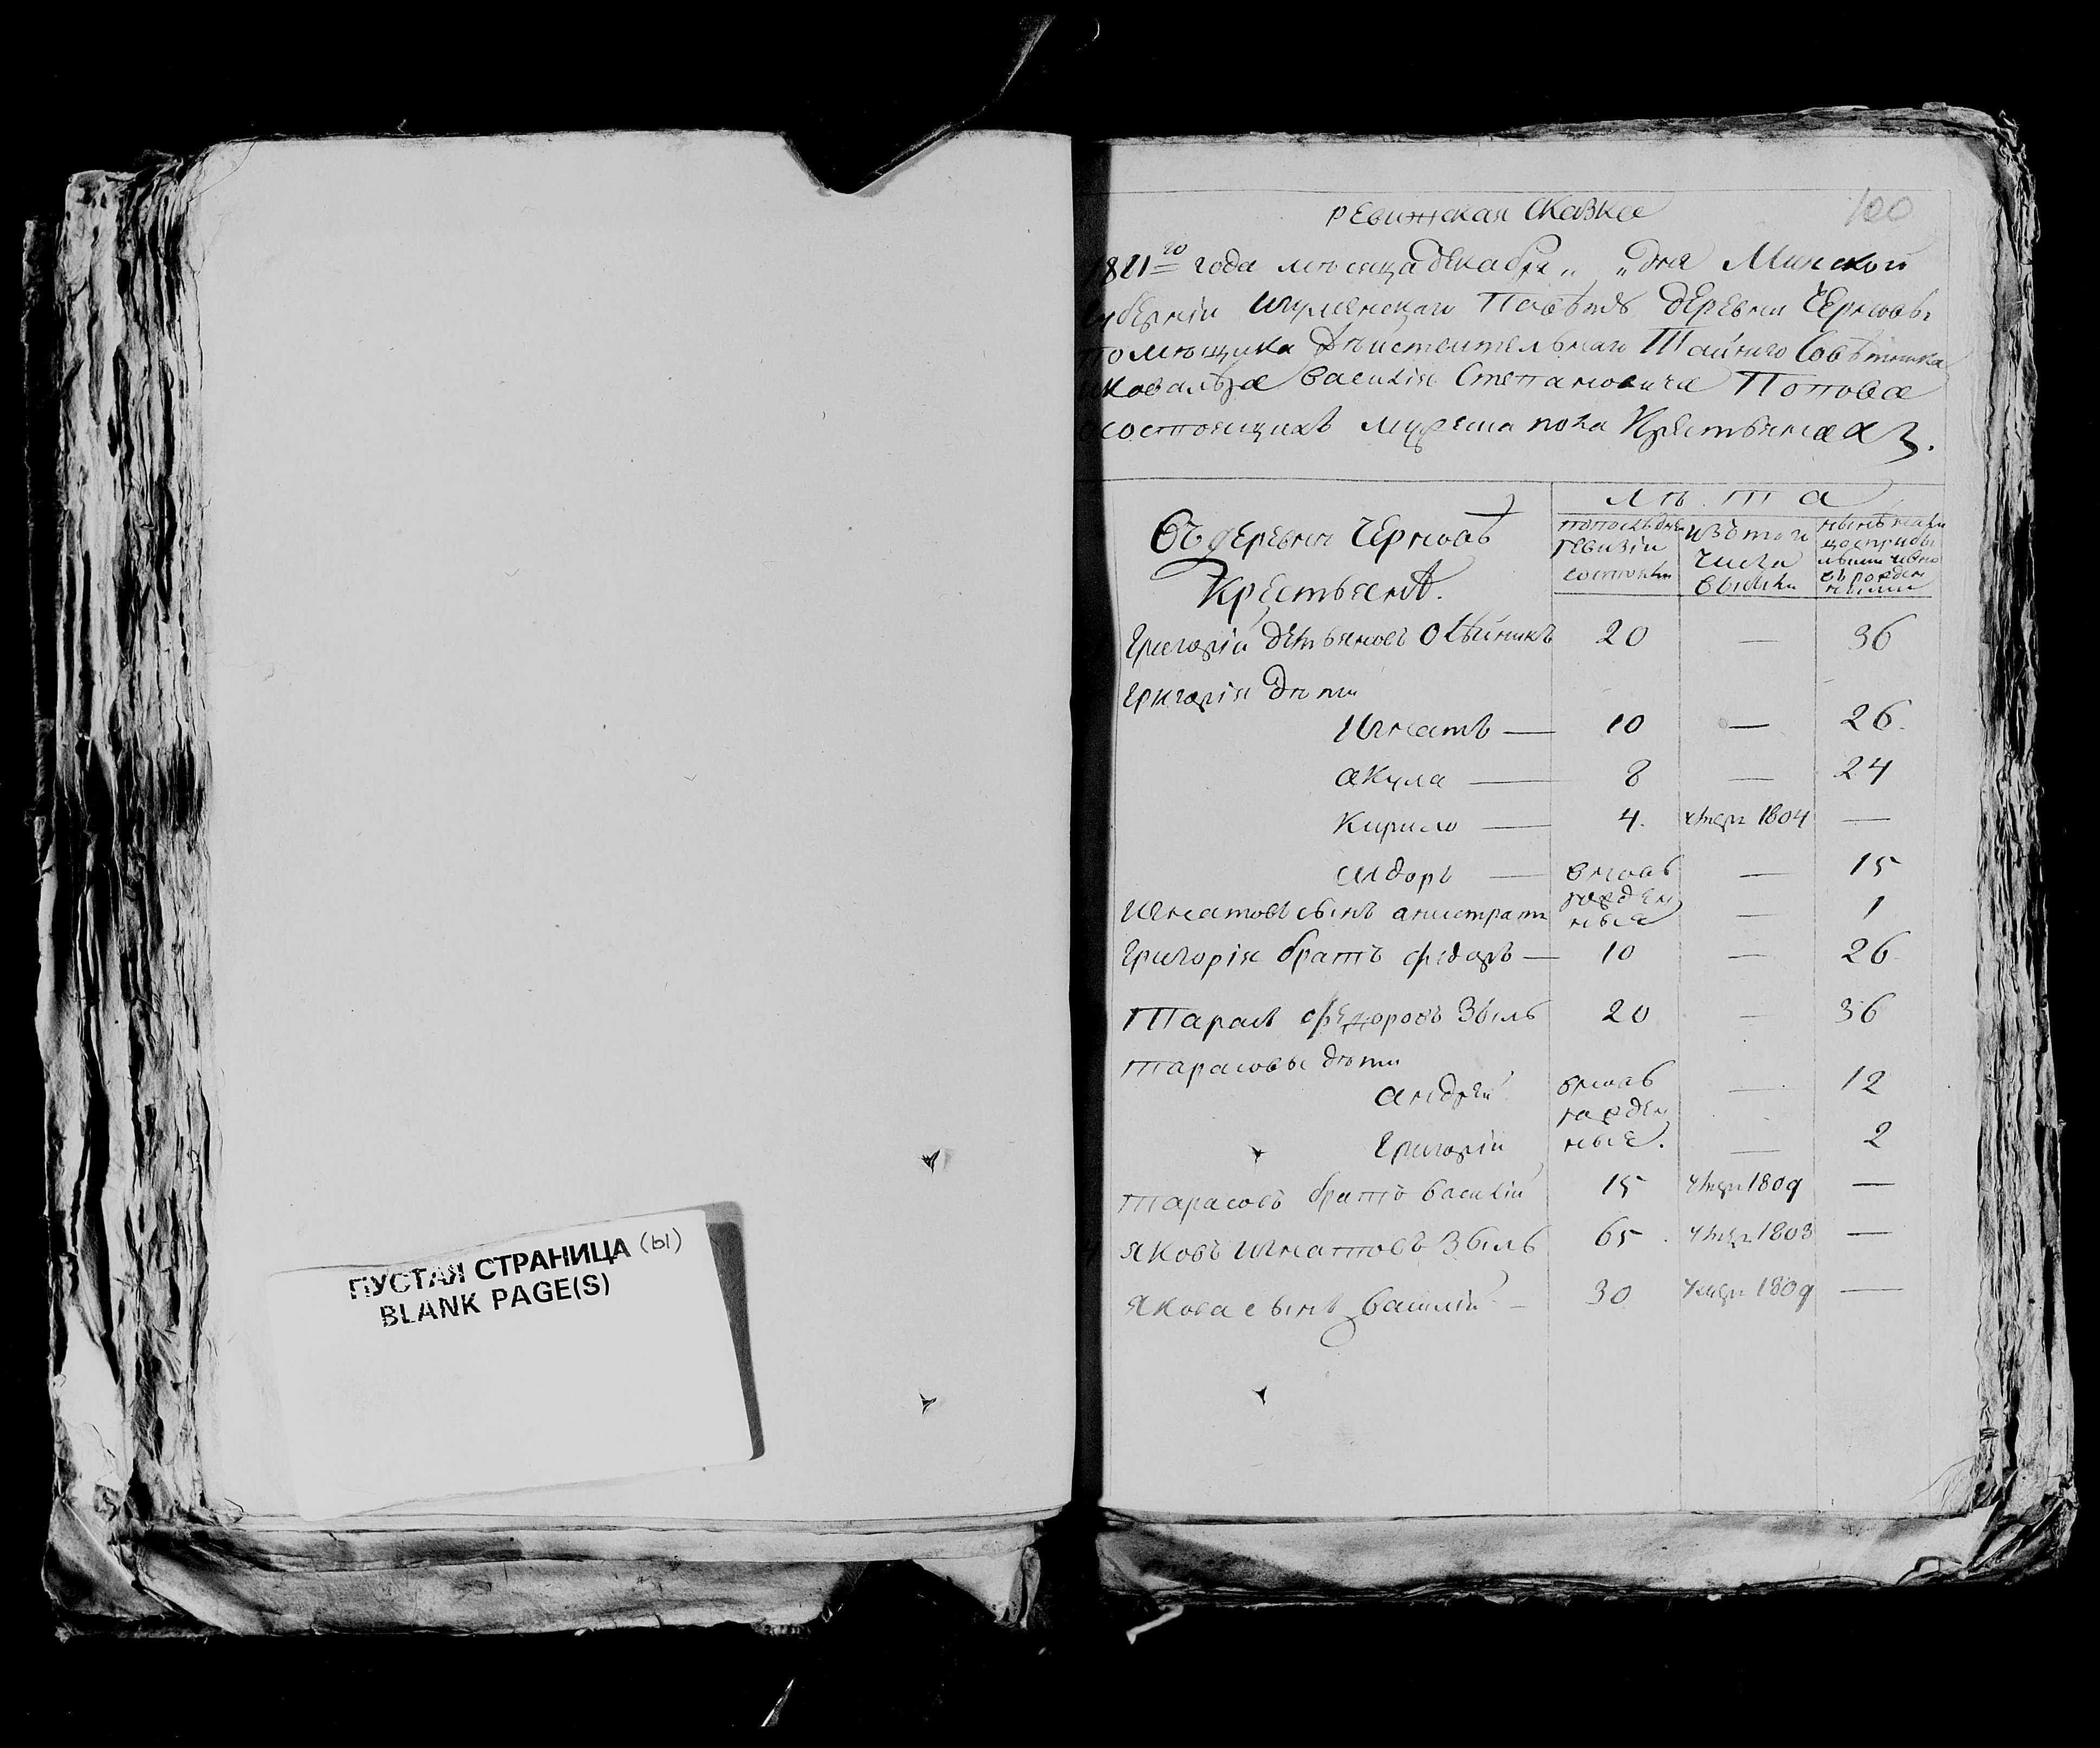 ПУСТАЯ СТРАНИЦА (ы)
BLANK PAGE(S)
100
ревижская сказка
1811го года мѣсяца декабря „ „ дня Минской
губерніи Игуменскаго Повѣта деревни Чернова
помѣщика дѣиствительнаго Тайнаго Совѣтника
Кавалера Василія Степановича Попова
состоящихъ мужеска пола Крестьянахъ.
Лѣта
Въ деревни Чернова
Крестьянъ.
по последней ревизіи состояли
изъ того числа выбыли
Григорій Демьяновъ 20 — 36
Григорія дѣти
Игнатъ — 10 — 26.
акула — 8 — 24
Кирило — 4. умеръ 1804 —
сидоръ — вновь рожденные — 15
Игнатовъ сынъ — 1
Григорія братъ федоръ — 10 — 26
Тарасъ федоровъ Збыль 20 — 36
Тарасовы дѣти
андрей вновь рожденные. — 12
Григорій — 2
Тарасовъ братъ василій 15 умеръ 1809 —
яковъ Игнатовъ Збыль 65 умеръ 1803 —
якова сынъ василій — 30 умеръ 1809 —